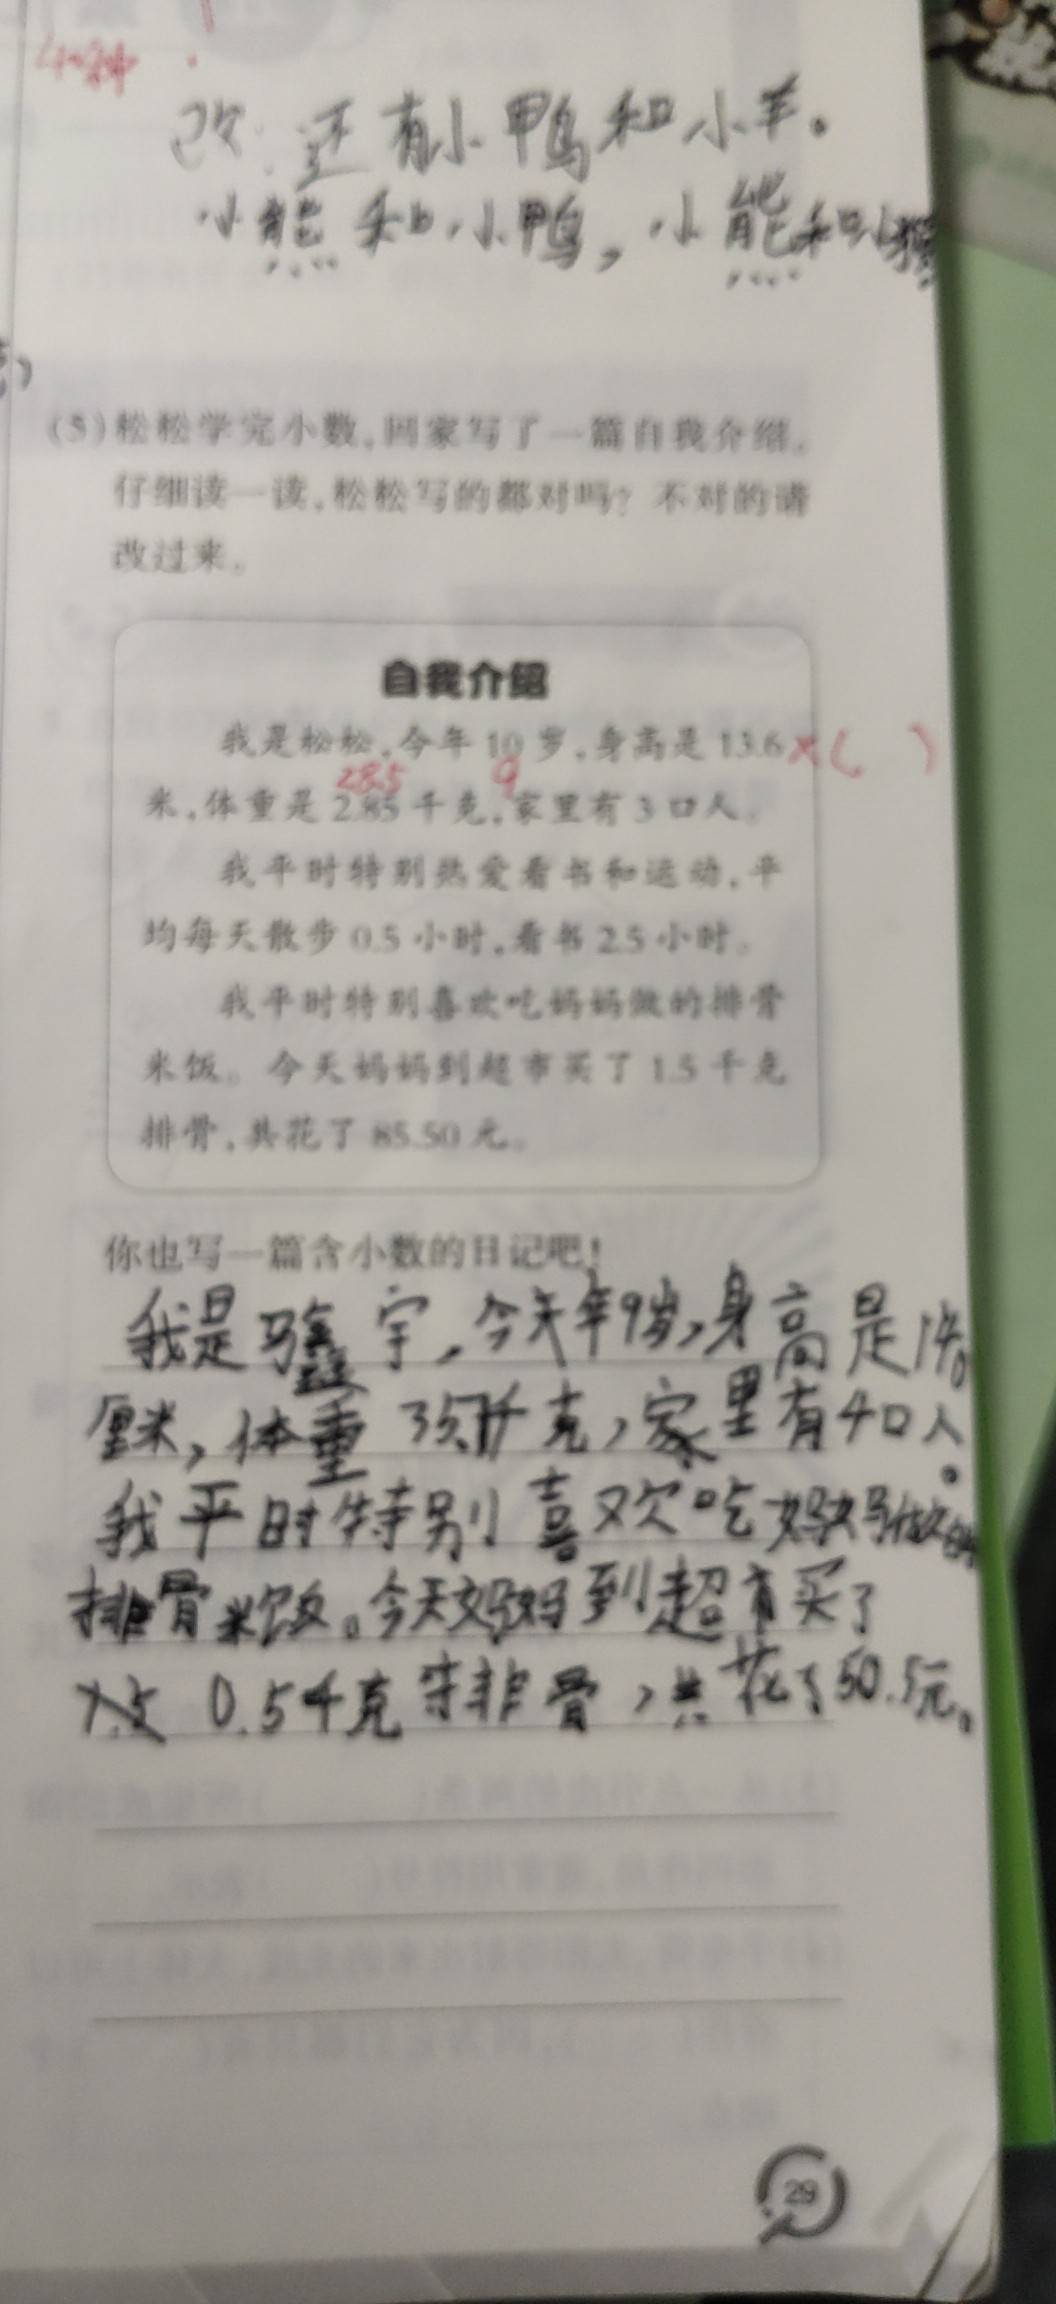 种
改:还有小鸭和小羊。
小熊和小鸭,小熊和小
(5)松松学完小数,回家写了一篇自我介绍。
仔细读一读,松松写的都对吗?不对的请
改过来。
自我介绍
我是松松,今年10岁,身高是13.6 ×( )
28.5 9
米,体重是2.85千克,家里有3口人。
我平时特别热爱看书和运动,平
均每天散步0.5小时,看书2.5小时。
我平时特别喜欢吃妈妈做的排骨
米饭。今天妈妈到超市买了1.5千克
排骨,共花了85.50元。
你也写一篇含小数的日记吧!
我是 宇,今年9岁,身高是140
厘米,体重 千克,家里有4口人。
我平时特别喜欢吃妈妈做的
排骨米饭。今天妈妈到超市买了
0.5千克排骨,共花了50.5元。
29